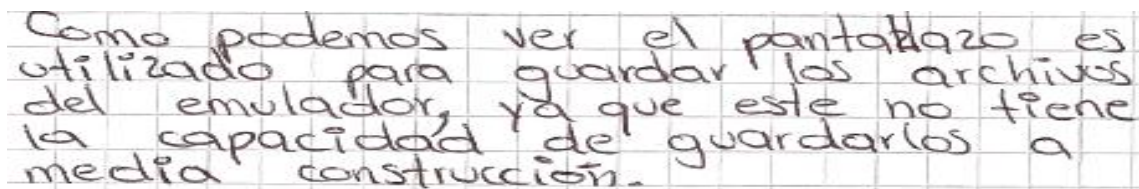 Como podemos ver el pantallazo es
utilizado para guardar los archivos
del emulador, ya que este no tiene
la capacidad de guardarlos a
media construcción.